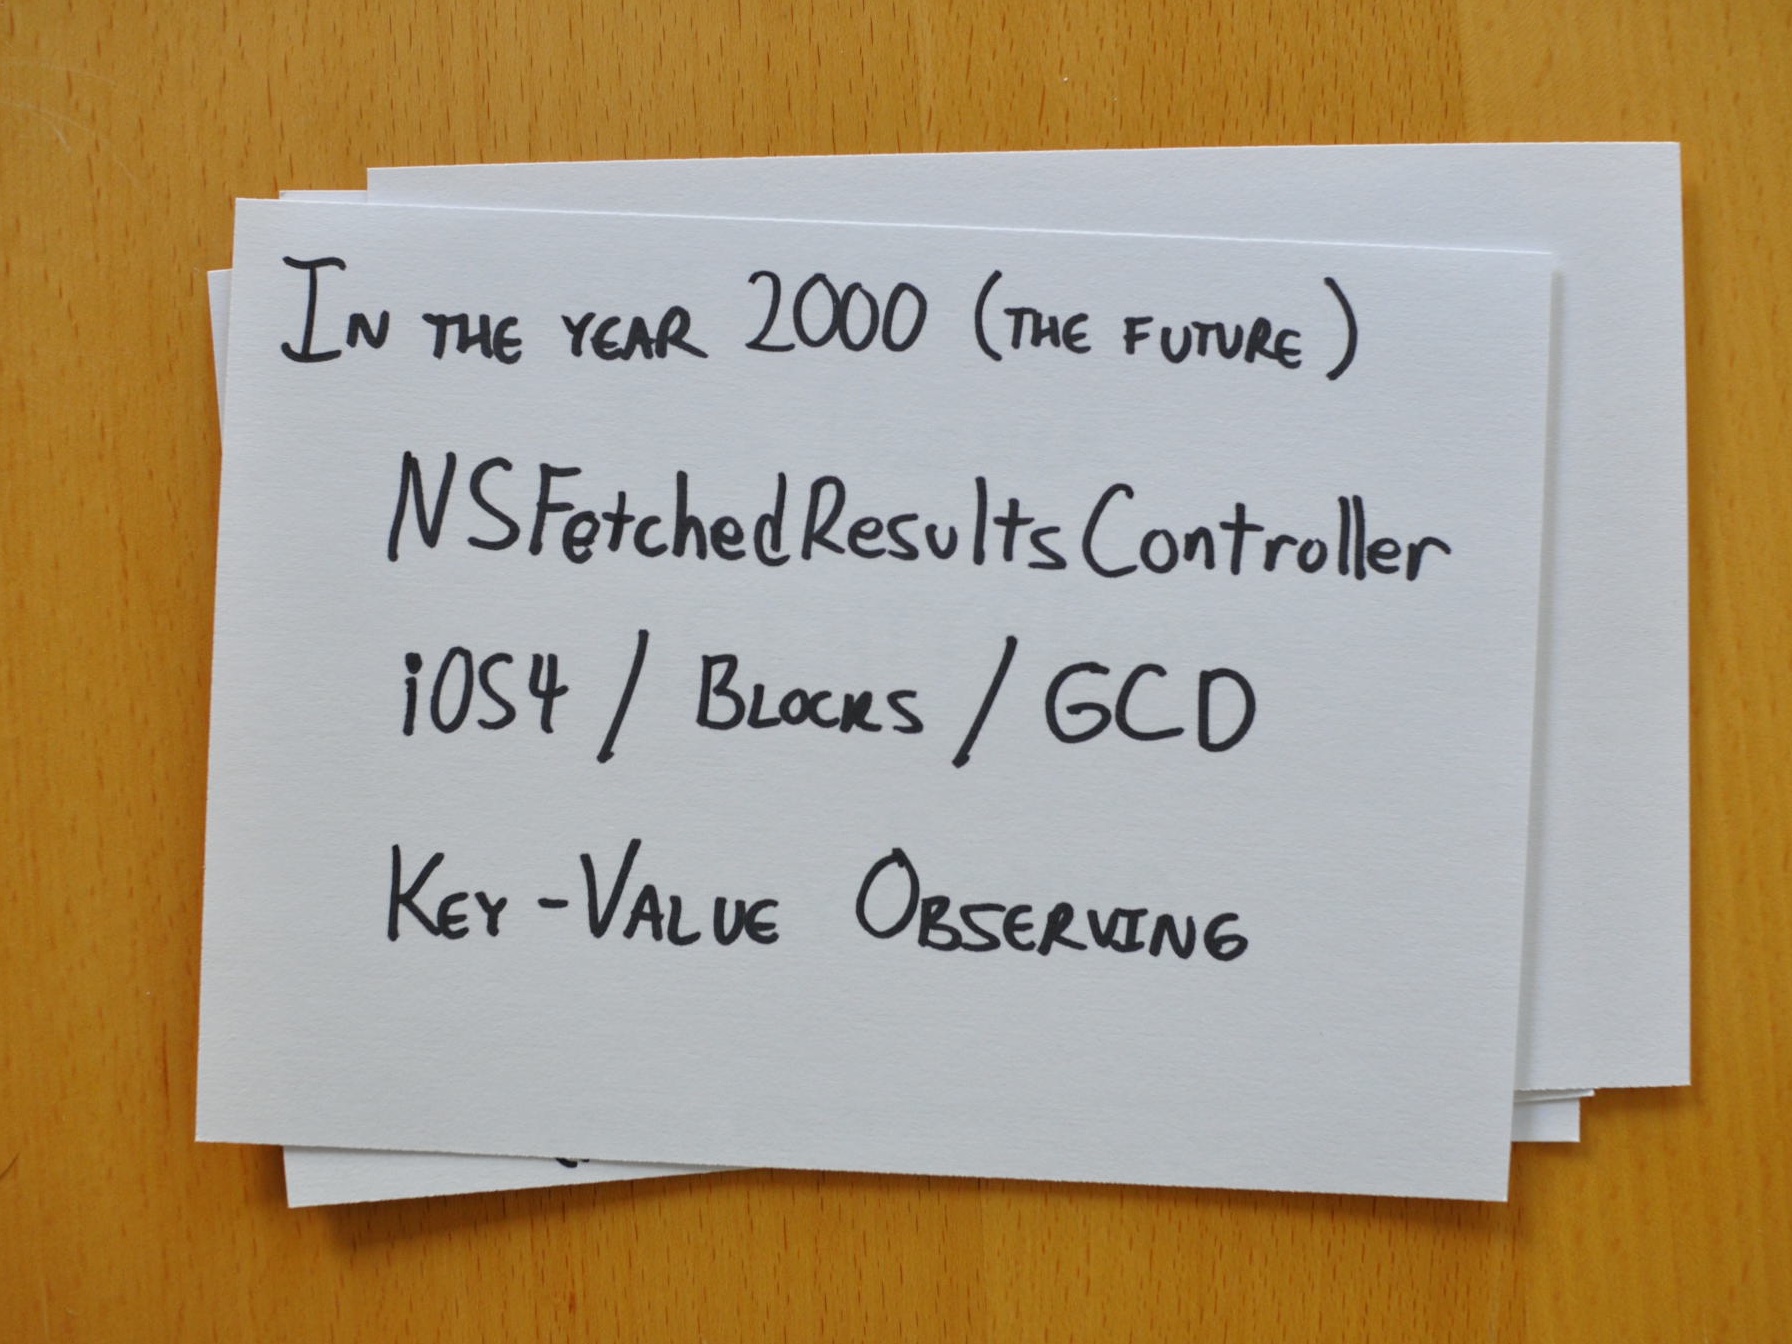 In the year 2000 (the future)
NSFetchedResultsController
iOS4 / Blocks / GCD
Key-Value Observing